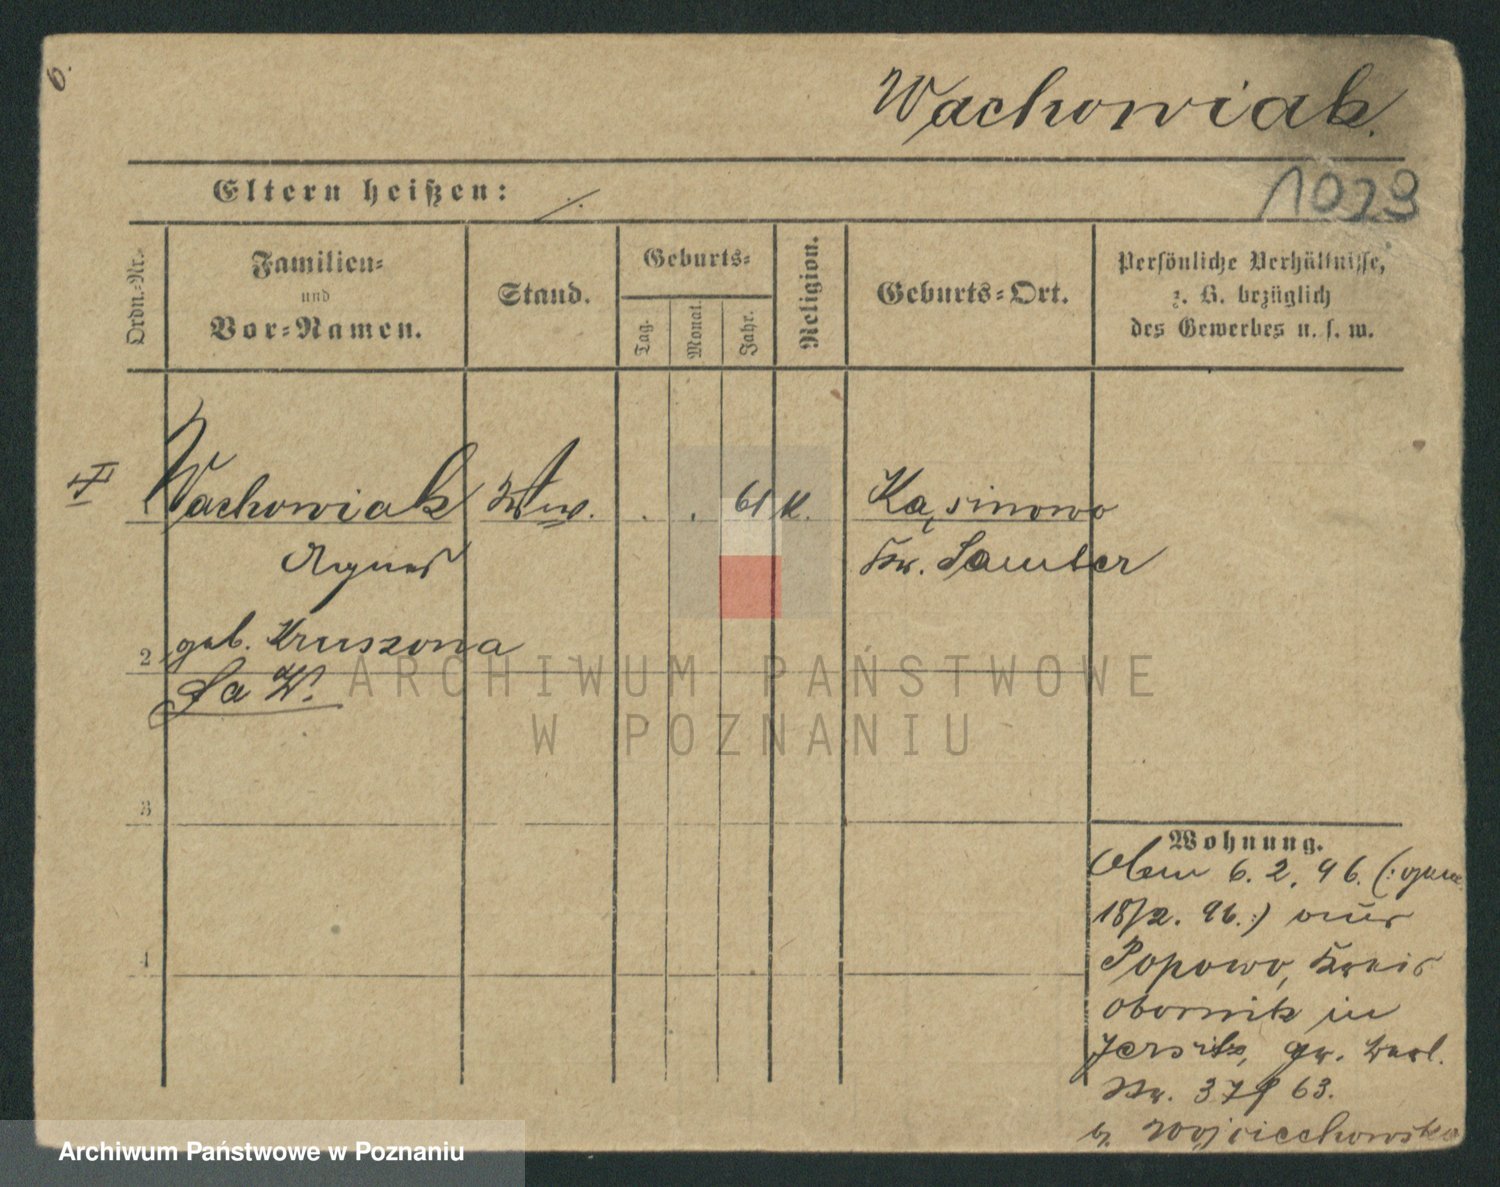 6.
Wachowiak.
1023
Eltern heißen: ./.
Ordn.-Nr.
Familien-
und
Vor-Namen.
Stand.
Geburts-
Tag.
Monat.
Jahr.
Religion.
Geburts-Ort.
Persönliche Verhältnisse,
z. B. bezüglich
des Gewerbes u. s. w.
Wachowiak Ww. . . 61 K. Kąsinowo
Agnes Kr. Samter
geb. Kruszona
2
Sa W.
3
4
Wohnung.
6. 2. 96. (:
18/2. 96.:) aus
Popowo, Kreis
Obornik in
Jersitz, Gr. Berl.
Str. 37/63.
b. Wojciechowska
ARCHIWUM PAŃSTWOWE
W POZNANIU
Archiwum Państwowe w Poznaniu